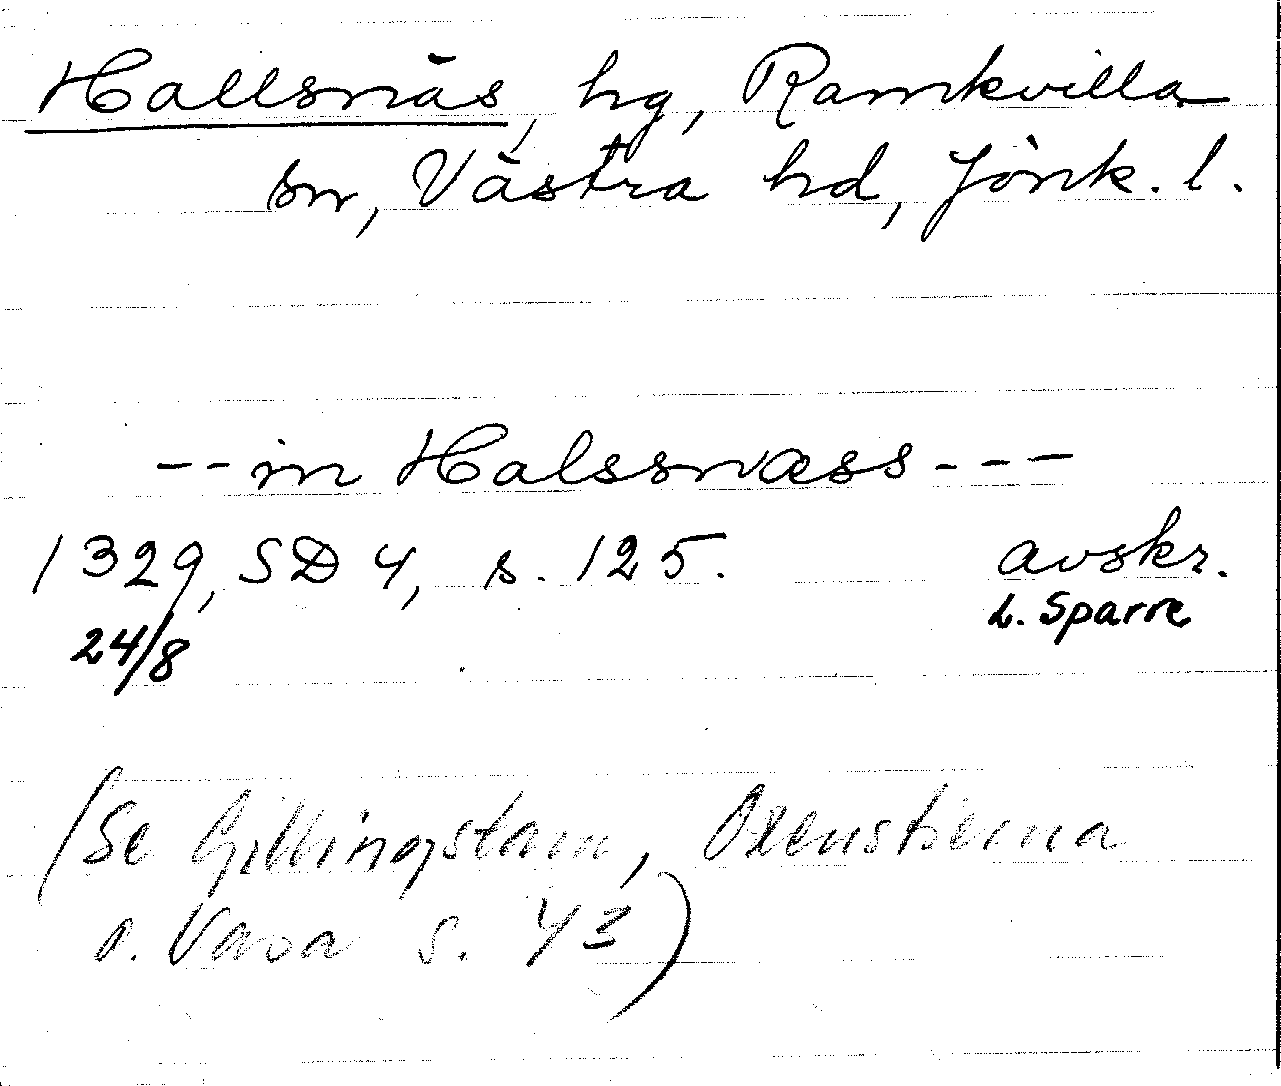 Hallsnäs, hg, Ramkvilla
sn, Västra hd, Jönk. l.
--in Halssnæss---
1329, SD 4, s. 125. avskr.
24/8 L. Sparre
(Se Gillingstam, Oxenstierna
o. Vasa s. 43)